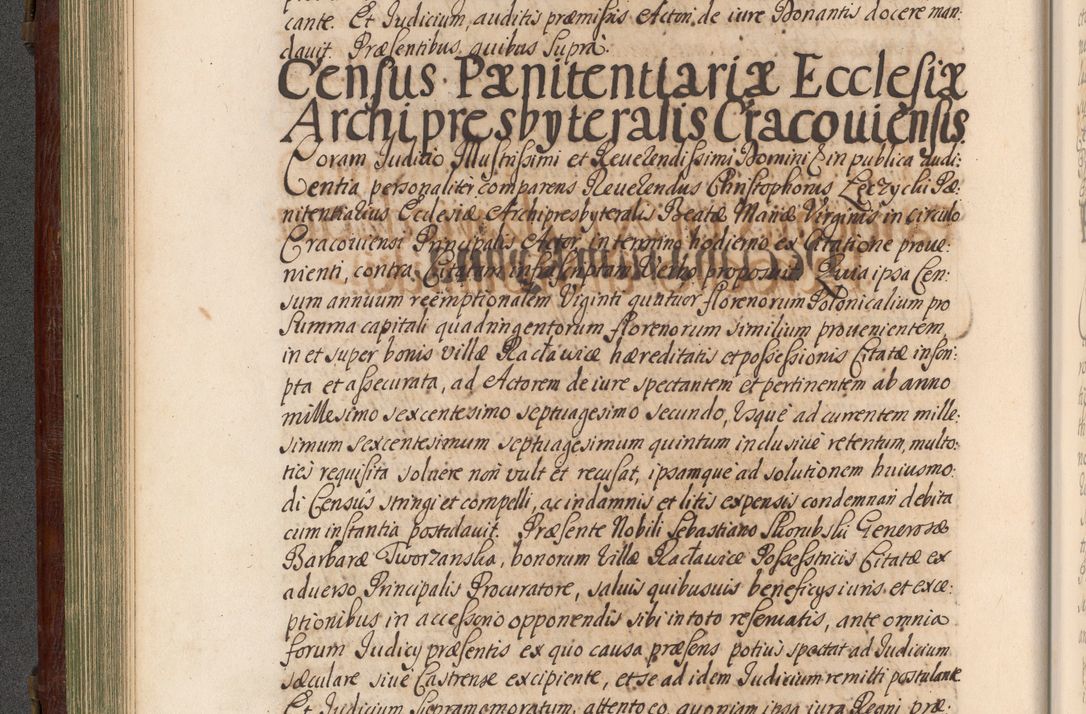 cante. Et Judicium, auditis præmissis Actori, de iure Donantis docere man:
davit. Præsentibus, quibus supra.
Census Pænitentiariæ Ecclesiæ
Archipresbyteralis Cracouiensis
Coram Judicio Illustrissimi et Reuerendissimi Domini in publica audi:
Centia personaliter comparens Reuerendus Christophorus Łęczycki Pæ:
nitentiarius Ecclesiæ Archipresbyteralis Beatæ Mariæ Virginis in circulo
Cracouiensi Principalis Actor, in termino hodierno ex Citatione proue:
nienti, contra Citatam infrascriptam Verbo proposuit Quia ipsa Cen:
sum annuum reemptionalem Viginti quatuor florenorum Polonicalium pro
summa capitali quadringentorum florenorum similium prouenientem,
in et super bonis villæ Racławice hæreditatis et possessionis Citatæ inscri:
pta et assecurata, ad Actorem de iure spectantem et pertinentem ab anno
millesimo sexcentesimo septuagesimo secundo, Vsque ad currentem mille:
simum sexcentesimum septuagesimum quintum inclusiue retentum, multo:
ties requisita soluere non vult et recusat, ipsamque ad solutionem huiusmo:
di Censûs stringi et compelli, ac in damnis et litis expensis condemnari debita
cum instantia postulauit. Præsente Nobili Sebastiano Skorubski Generosæ
Barbaræ Tworzanska, bonorum Villæ Racławice Possessricis Citatæ ex
aduerso Principalis Procuratore, saluis quibusuis beneficys iuris, et exce:
ptionibus in accessorio opponendis sibi in toto reseruatis, ante omnia
forum Judicy præsentis ex quo causa præsens potius spectat ad Judicium
sæculare siue Castrense excipiente, et se ad idem Judicium remitti postulante
Et Judicium Supramemoratum, attento eo, quoniam ipsa iura Regni præ: